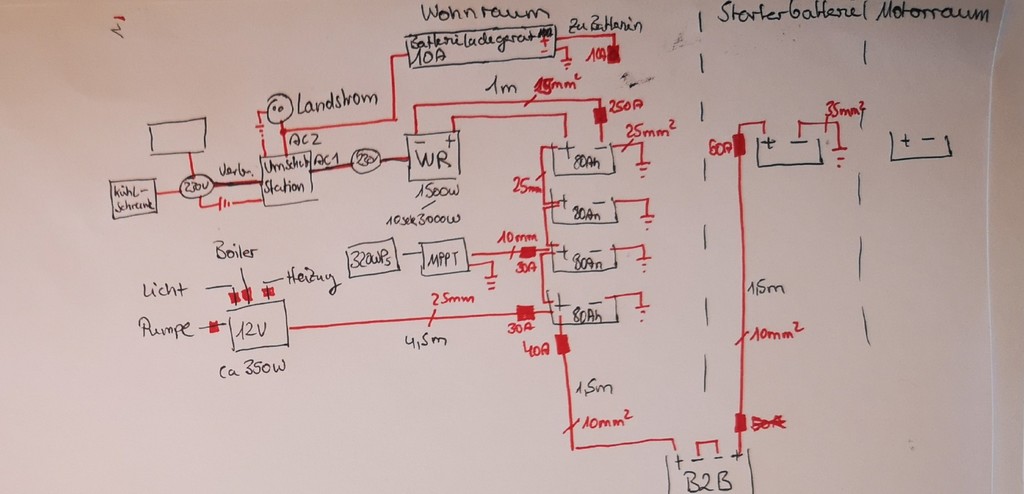 Wohnraum
Starterbatterie
Motorraum
Batterieladegerät
10A
+
-
zu Batterien
10A
Landstrom
AC2
1m
mm²
250A
25mm²
Umschalt
Station
AC1
230V
- +
WR
1500W
10sek 3000W
+ -
80Ah
25mm
+ -
80Ah
+ -
80Ah
+ -
80Ah
230V
Verbr.
Kühl-
schrank
320WPs
MPPT
10mm
30A
Boiler
Licht
Heizug
Pumpe
12V
ca 350W
25mm
4,5m
30A
40A
1,5m
10mm²
60A
+ -
35mm²
+ -
1,5m
10mm²
+ - - +
B2B